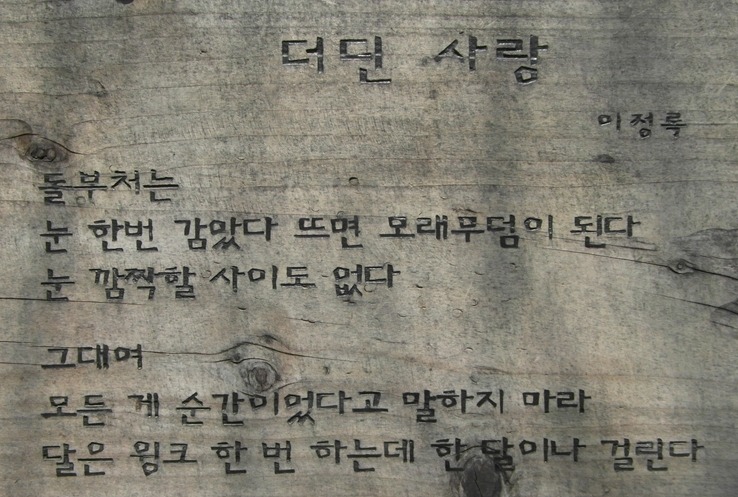 더딘 사랑
이정록
돌부처는
눈 한번 감았다 뜨면 모래무덤이 된다
눈 깜짝할 사이도 없다
그대여
모든 게 순간이었다고 말하지 마라
달은 윙크 한 번 하는데 한 달이나 걸린다